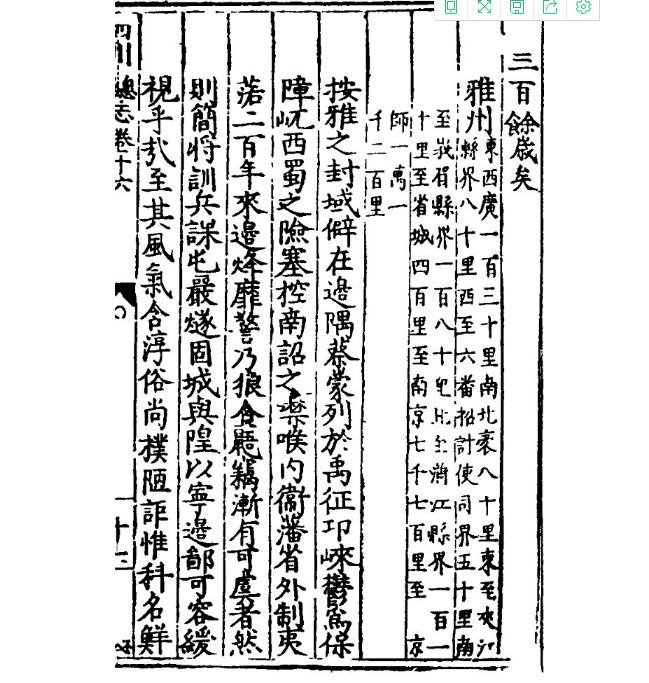 三百餘歲矣
雅州
東西廣一百三十里南北袤八十里東至夾江
縣界八十里西至六番招討使司界五十里南
至峩眉縣界一百八十里北至浦江縣界一百一
十里至省城四百里至南京七千七百里至　京
師一萬一
千二百里
按雅之封域僻在邊隅蔡蒙列於禹征卭崍鬱爲保
障屹西蜀之險塞控南詔之襟喉内衞藩省外制夷
落二百年來邊烽靡警乃狼貪鼠竊漸有可虞者然
則簡將訓兵課屯嚴燧固城與隍以寧邊鄙可容緩
視乎㢤至其風氣含淳俗尚樸陋詐惟科名鮮
四川總志卷十六　十三